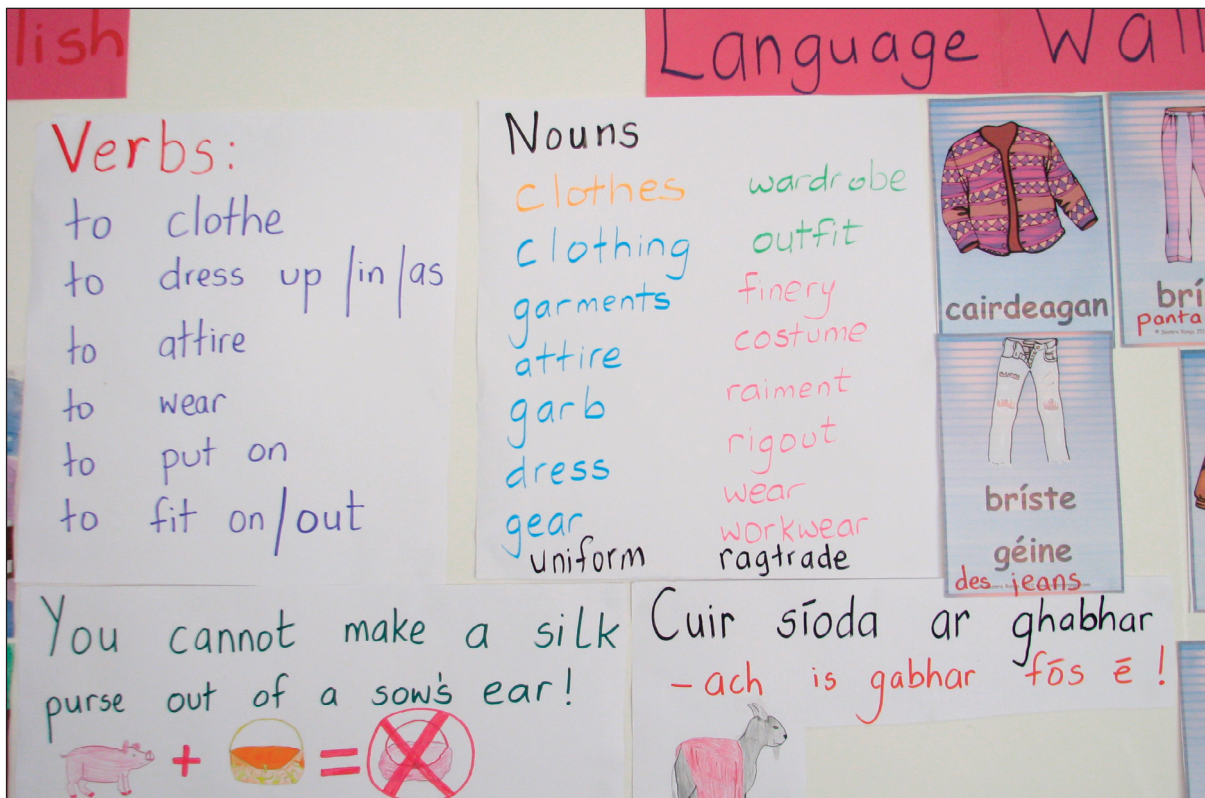 lish
Language Wall
Verbs:
to clothe
to dress up /in/as
to attire
to wear
to put on
to fit on/out
Nouns
clothes
clothing
garments
attire
garb
dress
gear
uniform
wardrobe
outfit
finery
costume
raiment
rigout
wear
workwear
ragtrade
cairdeagan
brí
panta
bríste
géine
des jeans
You cannot make a silk
purse out of a sow's ear!
+ =
Cuir síoda ar ghabhar
- ach is gabhar fós é!